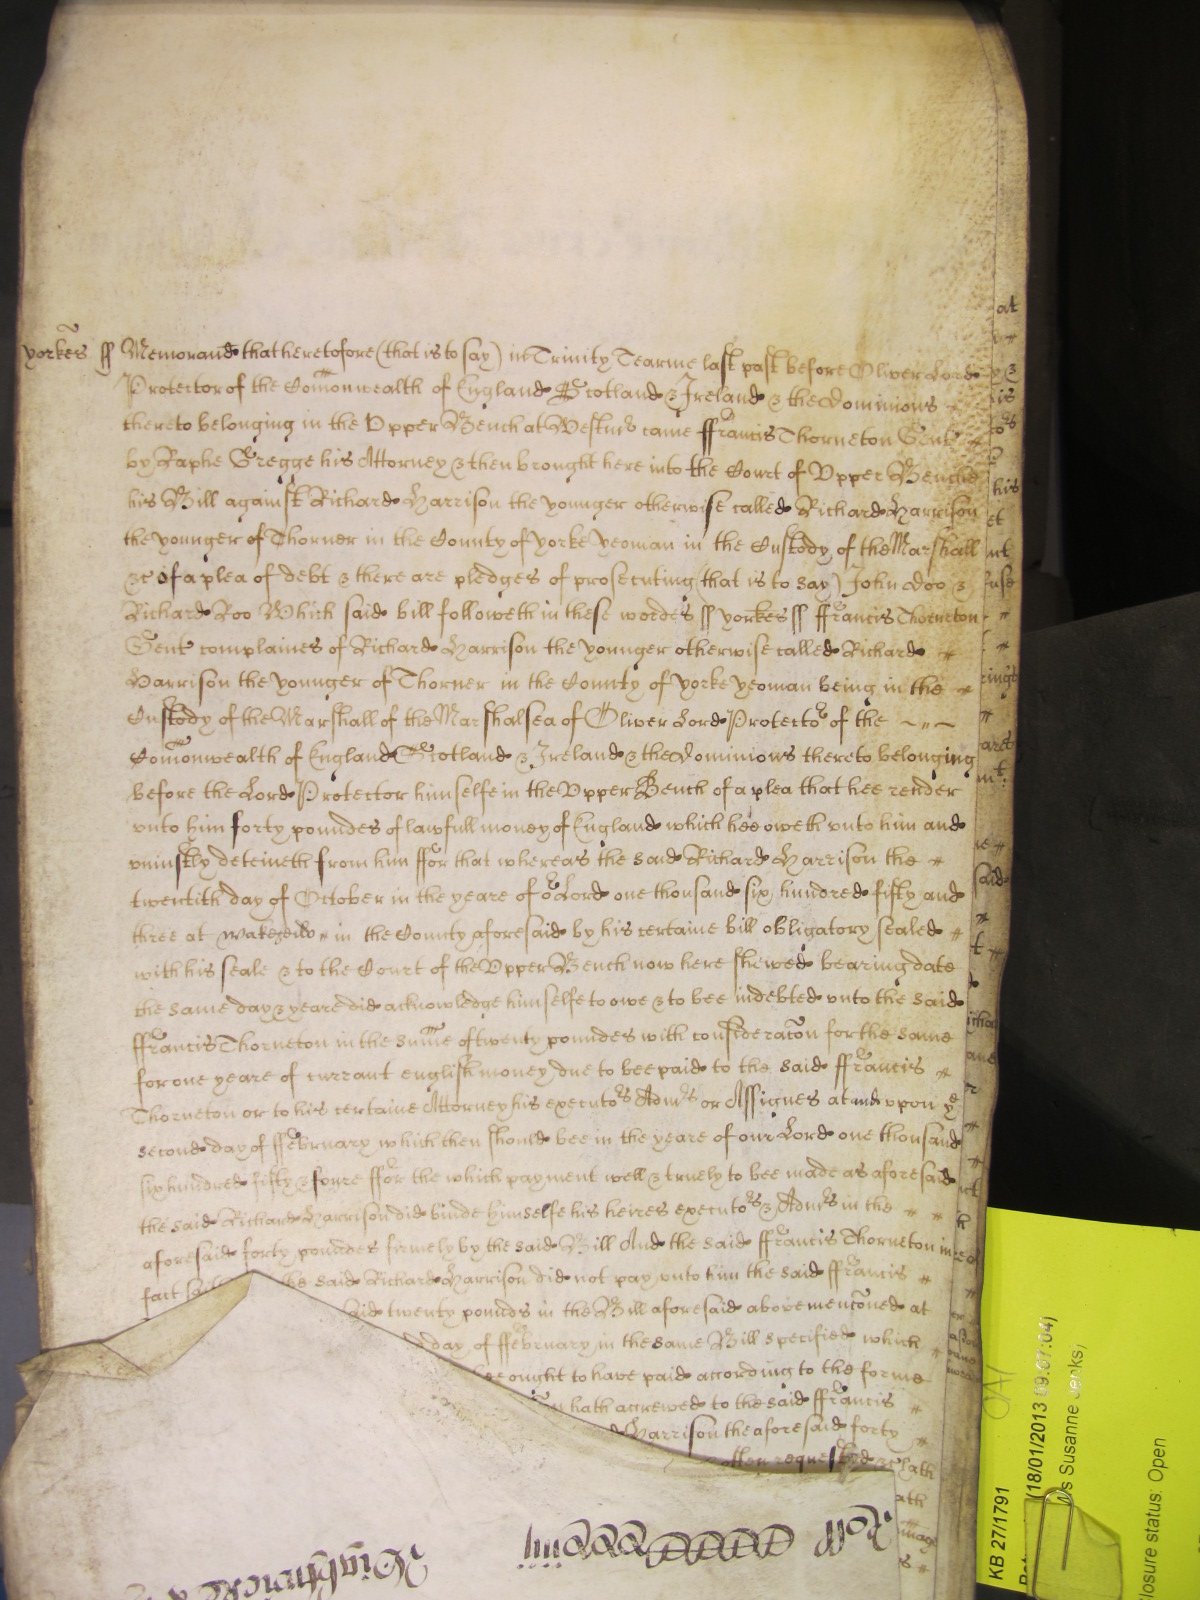 yorkes ss Memorand that heretofore (that is to say) in Trinity Tearme last past before Oliver Lord
Protector of the Comonwealth of England Scotland & Ireland & the Dominions
thereto belonging in the Upper Bench at Westmr came ffrancis Thorneton Gent
by Raphe Gregge his Attorney & then brought here into the Court of Upper Bench
his Bill against Richard Harrison the younger otherwise called Richard Harrison
the younger of Thorner in the County of yorke yeoman in the Custody of the Marshall
&c of a plea of debt & there are pledges of prosecuting (that is to say) John Doo &
Richard Roo Which said bill followeth in these wordes ss yorkes ss ffrancis Thorneton
Gent complaines of Richard Harrison the younger otherwise called Richard
Harrison the younger of Thorner in the County of yorke yeoman being in the
Custody of the Marshall of the Marshalsea of Oliver Lord Protector of the
Comonwealth of England Scotland & Ireland & the Dominions thereto belonging
before the Lord Protector himselfe in the Upper Bench of a plea that hee render
unto him forty poundes of lawfull money of England which hee oweth unto him and
uniustly deteineth from him ffor that whereas the said Richard Harrison the
twentith day of October in the yeare of or Lord one thousand six hundred fifty and
three at in the County aforesaid by his certaine bill obligatory sealed
with his seale & to the Court of the Upper Bench now here shewed bearing date
the same day & yeare did acknowledge himselfe to owe & to bee indebted unto the said
ffrancis Thorneton in the sume of twenty poundes with consideracon for the same
for one yeare of currant english money due to bee paid to the said ffrancis
Thorneton or to his certaine Attorney his executors Admrs or Assignes at and upon ye
second day of ffebruary which then should bee in the yeare of our Lord one thousand
six hundred fifty & foure ffor the which payment well & truely to bee made as aforesaid
the said Richard Harrison did binde himselfe his heires executors & Admrs in the
aforesaid forty poundes firmely by the said Bill And the said ffrancis Thorneton in
fact the said Richard Harrison did not pay unto him the said ffrancis
said twenty pounds in the Bill aforesaid above menconed at
day of ffebruary in the same Bill specified which
hee ought to have paid according to the forme
hath accrewed to the said ffrancis
Harrison the aforesaid forty
often requested &c hath
Roll
KB 27/1791
(18/01/2013 09:07:04)
Ms Susanne Jenks,
closure status: Open